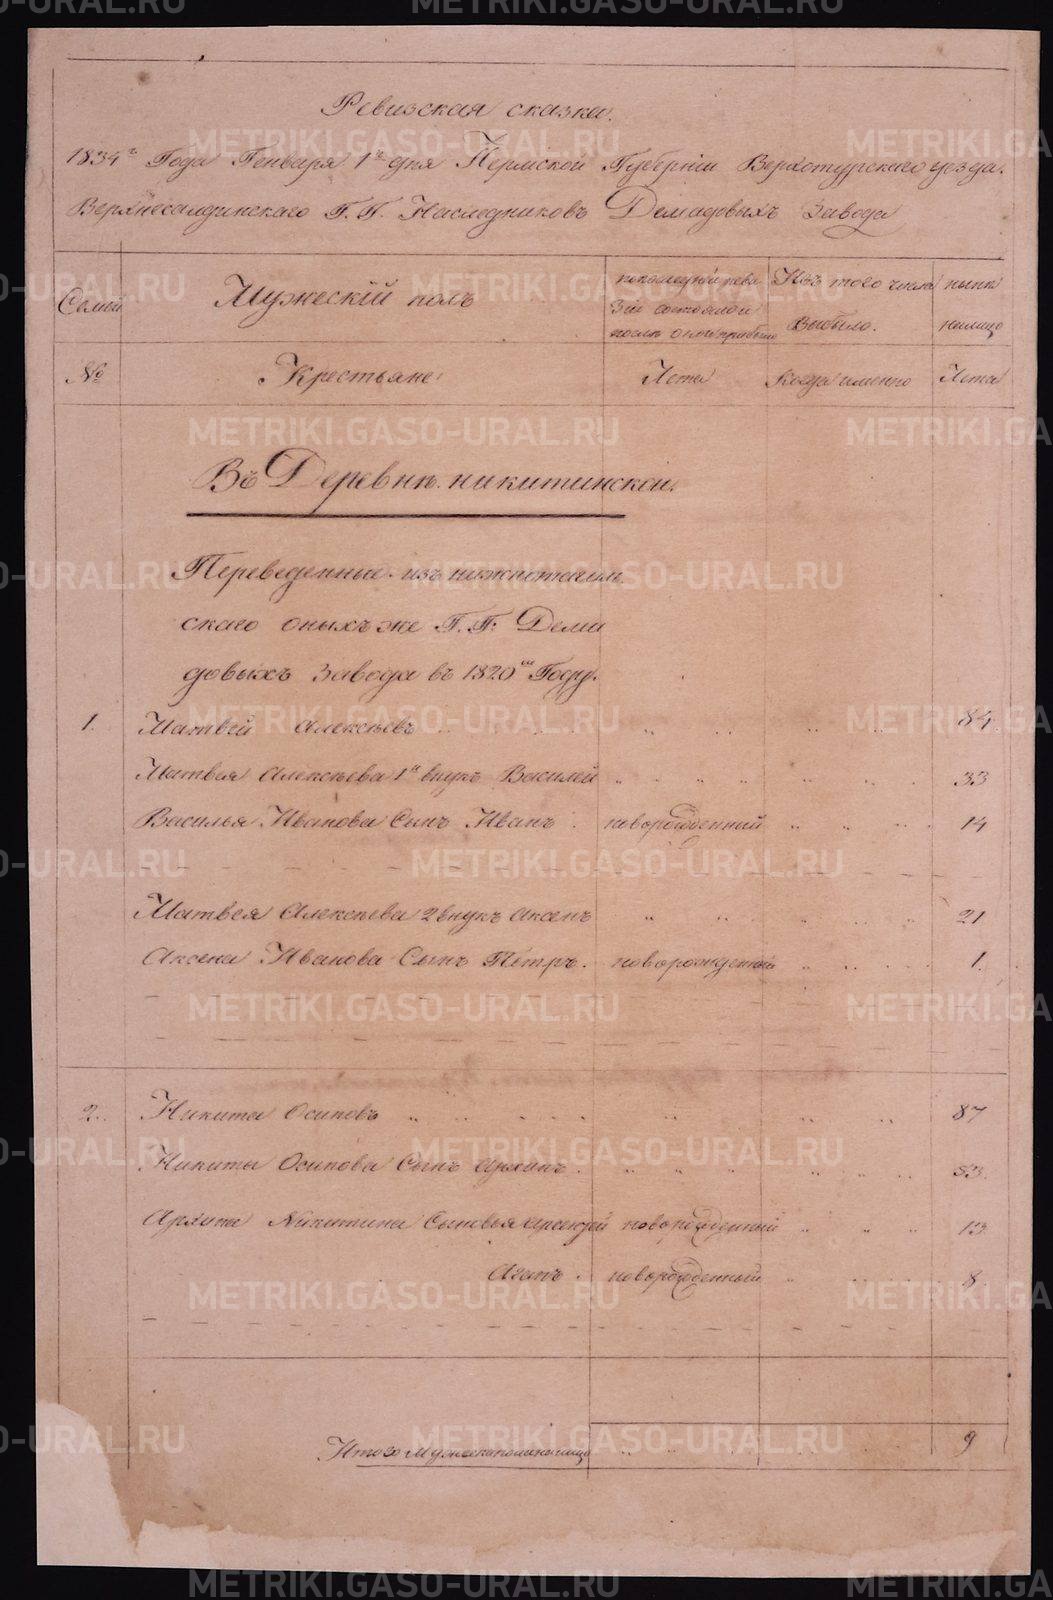 Ревизская сказка.
1834го Года Генваря 1го дня Пермской Губернiи Верхотурскаго уезда.
Верхнесалдинскаго Г.Г. Наследниковъ Демидовыхъ Завода
Семьи
Мужескiй полъ
По последней реви
зiи состояло и
после оной прибыло
Изъ того числа
Выбыло.
ныне
налицо
№
Крестьяне
Лета
Когда именно
Лета
Въ Деревне никитинской.
Переведенные изъ нижнетагил
скаго оныхъ же Г.Г. Деми
довыхъ Завода въ 1820м Году.
1. Матвей Алексеевъ 84
Матвея Алексеева 1й внукъ Василей 33
Василья Иванова Сынъ Иванъ новорожденный 14
Матвея Алексеева 2 внукъ Аксенъ 21
Аксена Иванова Сынъ Петръ новорожденный 1.
2. Никита Осиповъ 87
Никиты Осипова Сынъ Архипъ
Архипа Никитина Сыновья новорожденный 13
Агапъ новорожденный 8
Итого мужеска пола налицо 9
METRIKI.GASO-URAL.RU